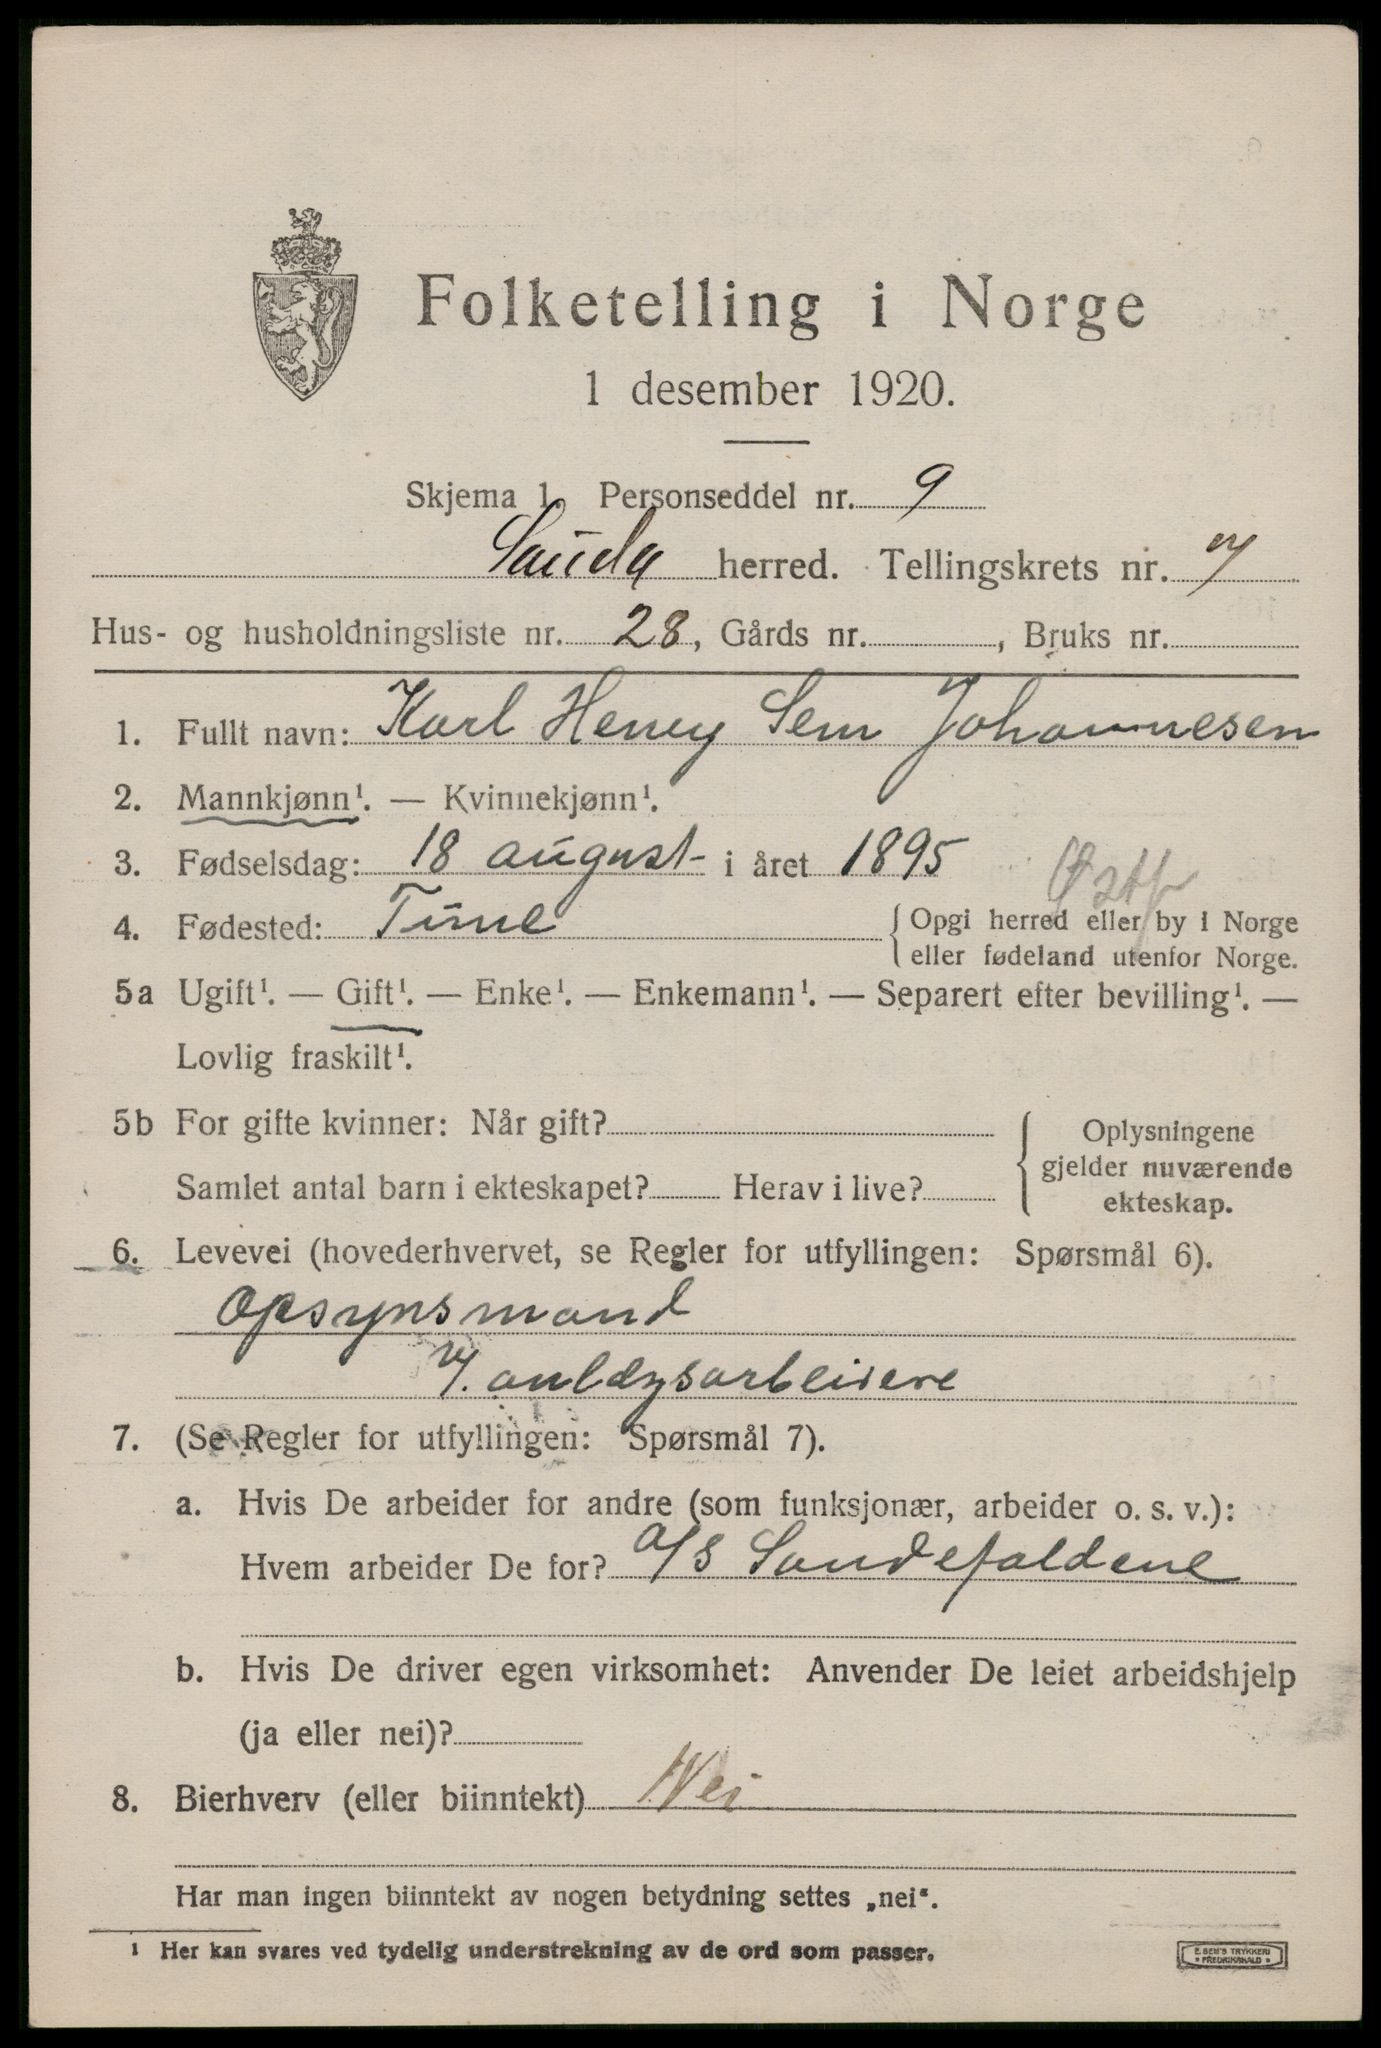 Folketelling i Norge
1 desember 1920.
Skjema 1. Personseddel nr. 9
Sauda herred. Tellingskrets nr. 7
Hus- og husholdningsliste nr. 28, Gårds nr. , Bruks nr.
1. Fullt navn: Karl Henry Sem Johannesen
2. Mannkjønn¹. — Kvinnekjønn¹.
3. Fødselsdag: 18 august i året 1895
Østf
4. Fødested: Tune { Opgi herred eller by i Norge
eller fødeland utenfor Norge.
5a Ugift¹. — Gift¹. — Enke¹. — Enkemann¹. — Separert efter bevilling¹. —
Lovlig fraskilt¹.
5b For gifte kvinner: Når gift? { Oplysningene
gjelder nuværende
Samlet antal barn i ekteskapet? Herav i live?
ekteskap.
6. Levevei (hovederhvervet, se Regler for utfyllingen: Spørsmål 6).
Opsynsmand
v/. anlægsarbeidere
7. (Se Regler for utfyllingen: Spørsmål 7).
a. Hvis De arbeider for andre (som funksjonær, arbeider o. s. v.):
Hvem arbeider De for? A/S Saudefaldene
b. Hvis De driver egen virksomhet: Anvender De leiet arbeidshjelp
(ja eller nei)?
8. Bierhverv (eller biinntekt) Nei
Har man ingen biinntekt av nogen betydning settes „nei".
¹ Her kan svares ved tydelig understrekning av de ord som passer.
E. SEM'S TRYKKERI
* FREDRIKSHALD *